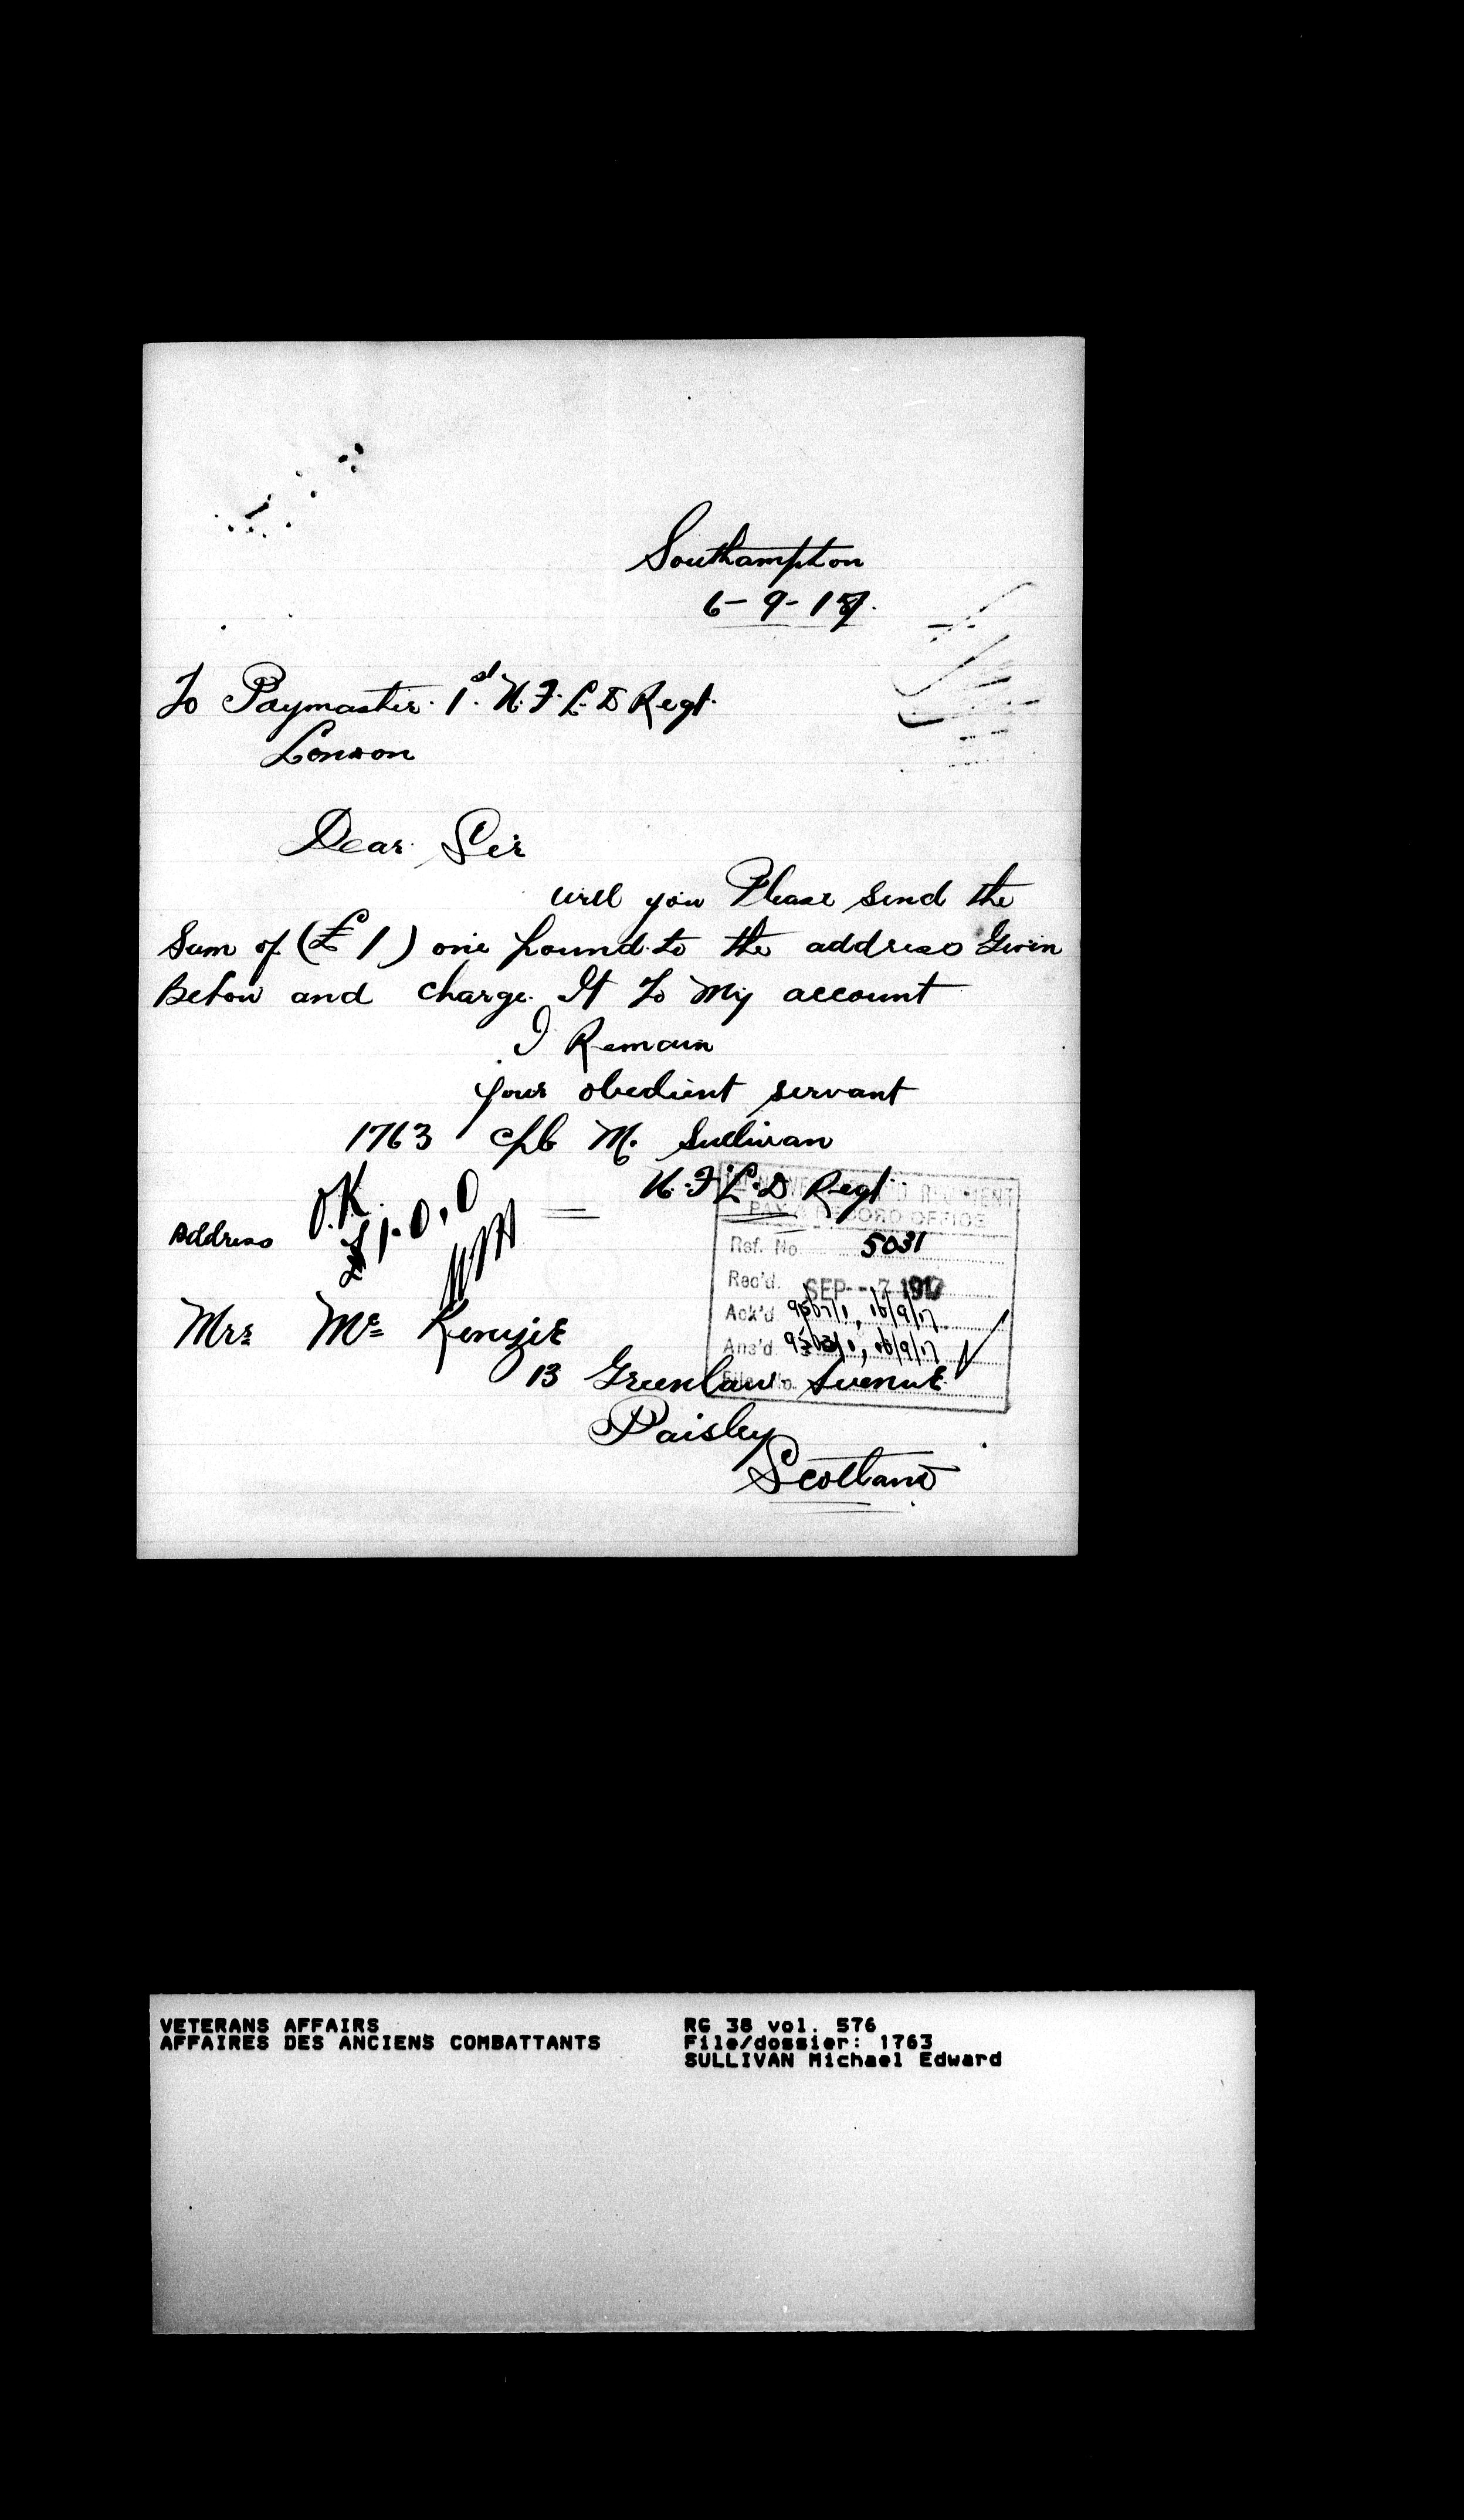 Southampton
6-9-17.
To Paymaster. 1st N.F.L.D Regt.
London
Dear Sir
will you Please send the
Sum of (£1) one pound to the address Given
Below and charge It To My account
I Remain
your obedient servant
1763 cpl M. Sullivan
N.F.L.D Regt
O.K.
£1.0.0
NEWFOUNDLAND REGIMENT
PAY & RECORD OFFICE
Address
Ref. No. 5031
Rec'd. SEP -7 1917
Ack'd 16/9/17
Ans'd 16/9/17
File No.
Mrs Mc Kenzie
13 Greenlaw Avenue
Paisley
Scotland
VETERANS AFFAIRS
AFFAIRES DES ANCIENS COMBATTANTS
RG 38 vol. 576
File/dossier: 1763
SULLIVAN Michael Edward